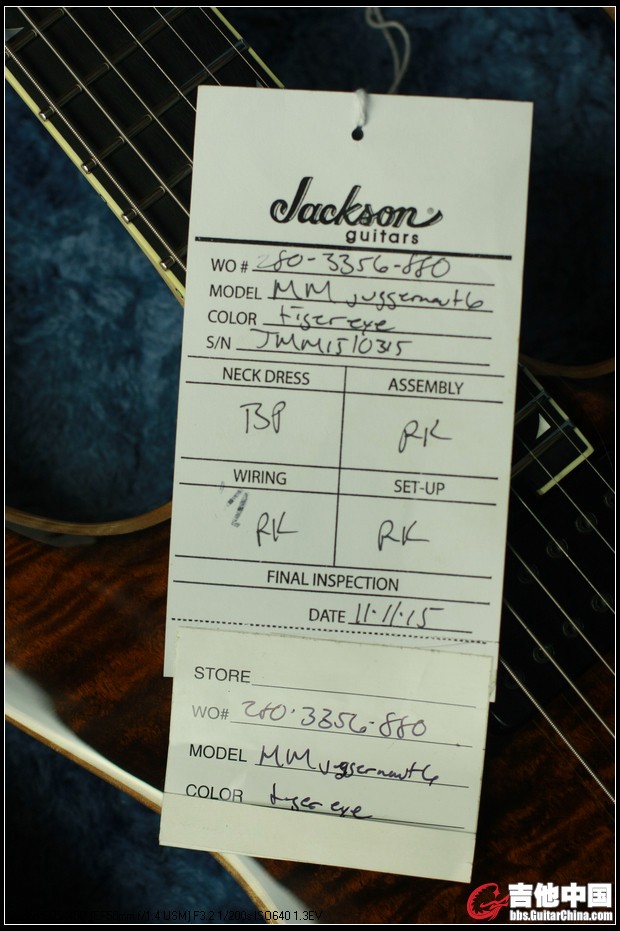 Jackson
guitars
WO # 280-3356-880
MODEL MM juggernaut6
COLOR tiger eye
S/N JMM1510315
NECK DRESS ASSEMBLY
BP RK
WIRING SET-UP
RK RK
FINAL INSPECTION
DATE 11.11.15
STORE
WO# 280.3356-880
MODEL MM juggernaut6
COLOR tiger eye
1.4 USM] F3.2 1/200s ISO640 1.3EV
吉他中国
bbs.GuitarChina.com